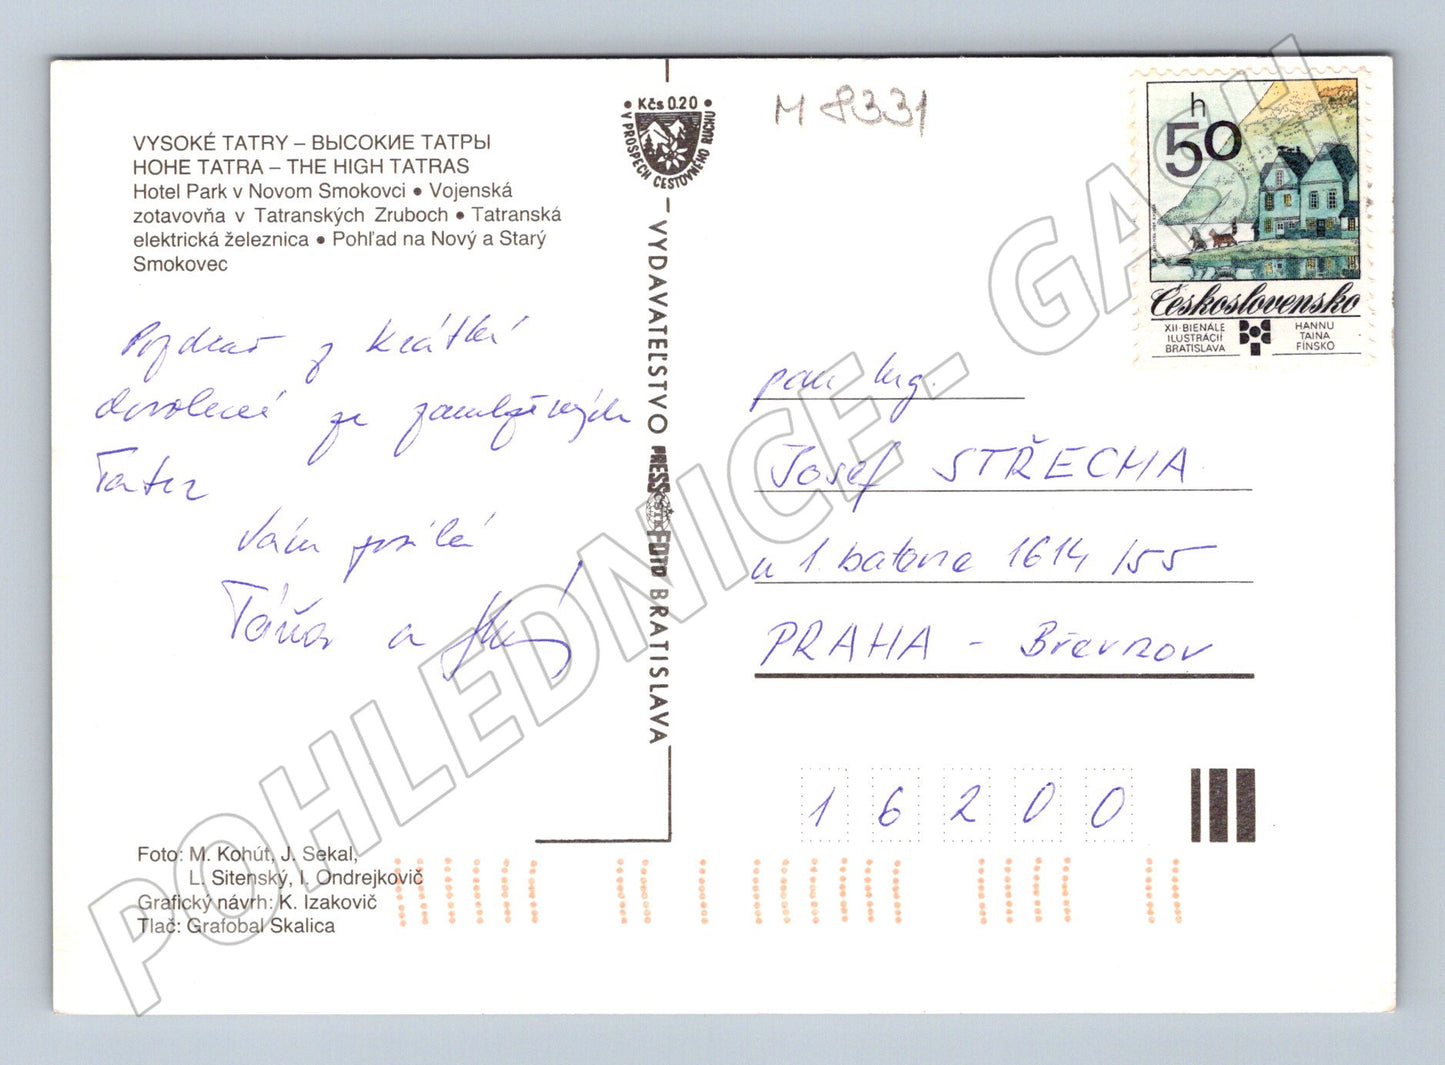 VYSOKÉ TATRY – ВЫСОКИЕ ТАТРЫ
HOHE TATRA – THE HIGH TATRAS
Hotel Park v Novom Smokovci • Vojenská
zotavovňa v Tatranských Zruboch • Tatranská
elektrická železnica • Pohľad na Nový a Starý
Smokovec
Pozdrav z krátké
dovolené ze
Tater
Vám posílá
Táňa a
Foto: M. Kohút, J. Sekal,
L. Sitenský, I. Ondrejkovič
Grafický návrh: K. Izakovič
Tlač: Grafobal Skalica
• Kčs 0.20 •
V PROSPECH CESTOVNÉHO RUCHU
VYDAVATEĽSTVO PRESSFOTO BRATISLAVA
ČSTK
M 8331
50 h
Československo
XII·BIENÁLE
ILUSTRÁCIÍ
BRATISLAVA
HANNU
TAINA
FÍNSKO
pan Ing.
Josef STŘECHA
u 1. baterie 1614/55
PRAHA – Břevnov
16200
POHLEDNICE - GASH